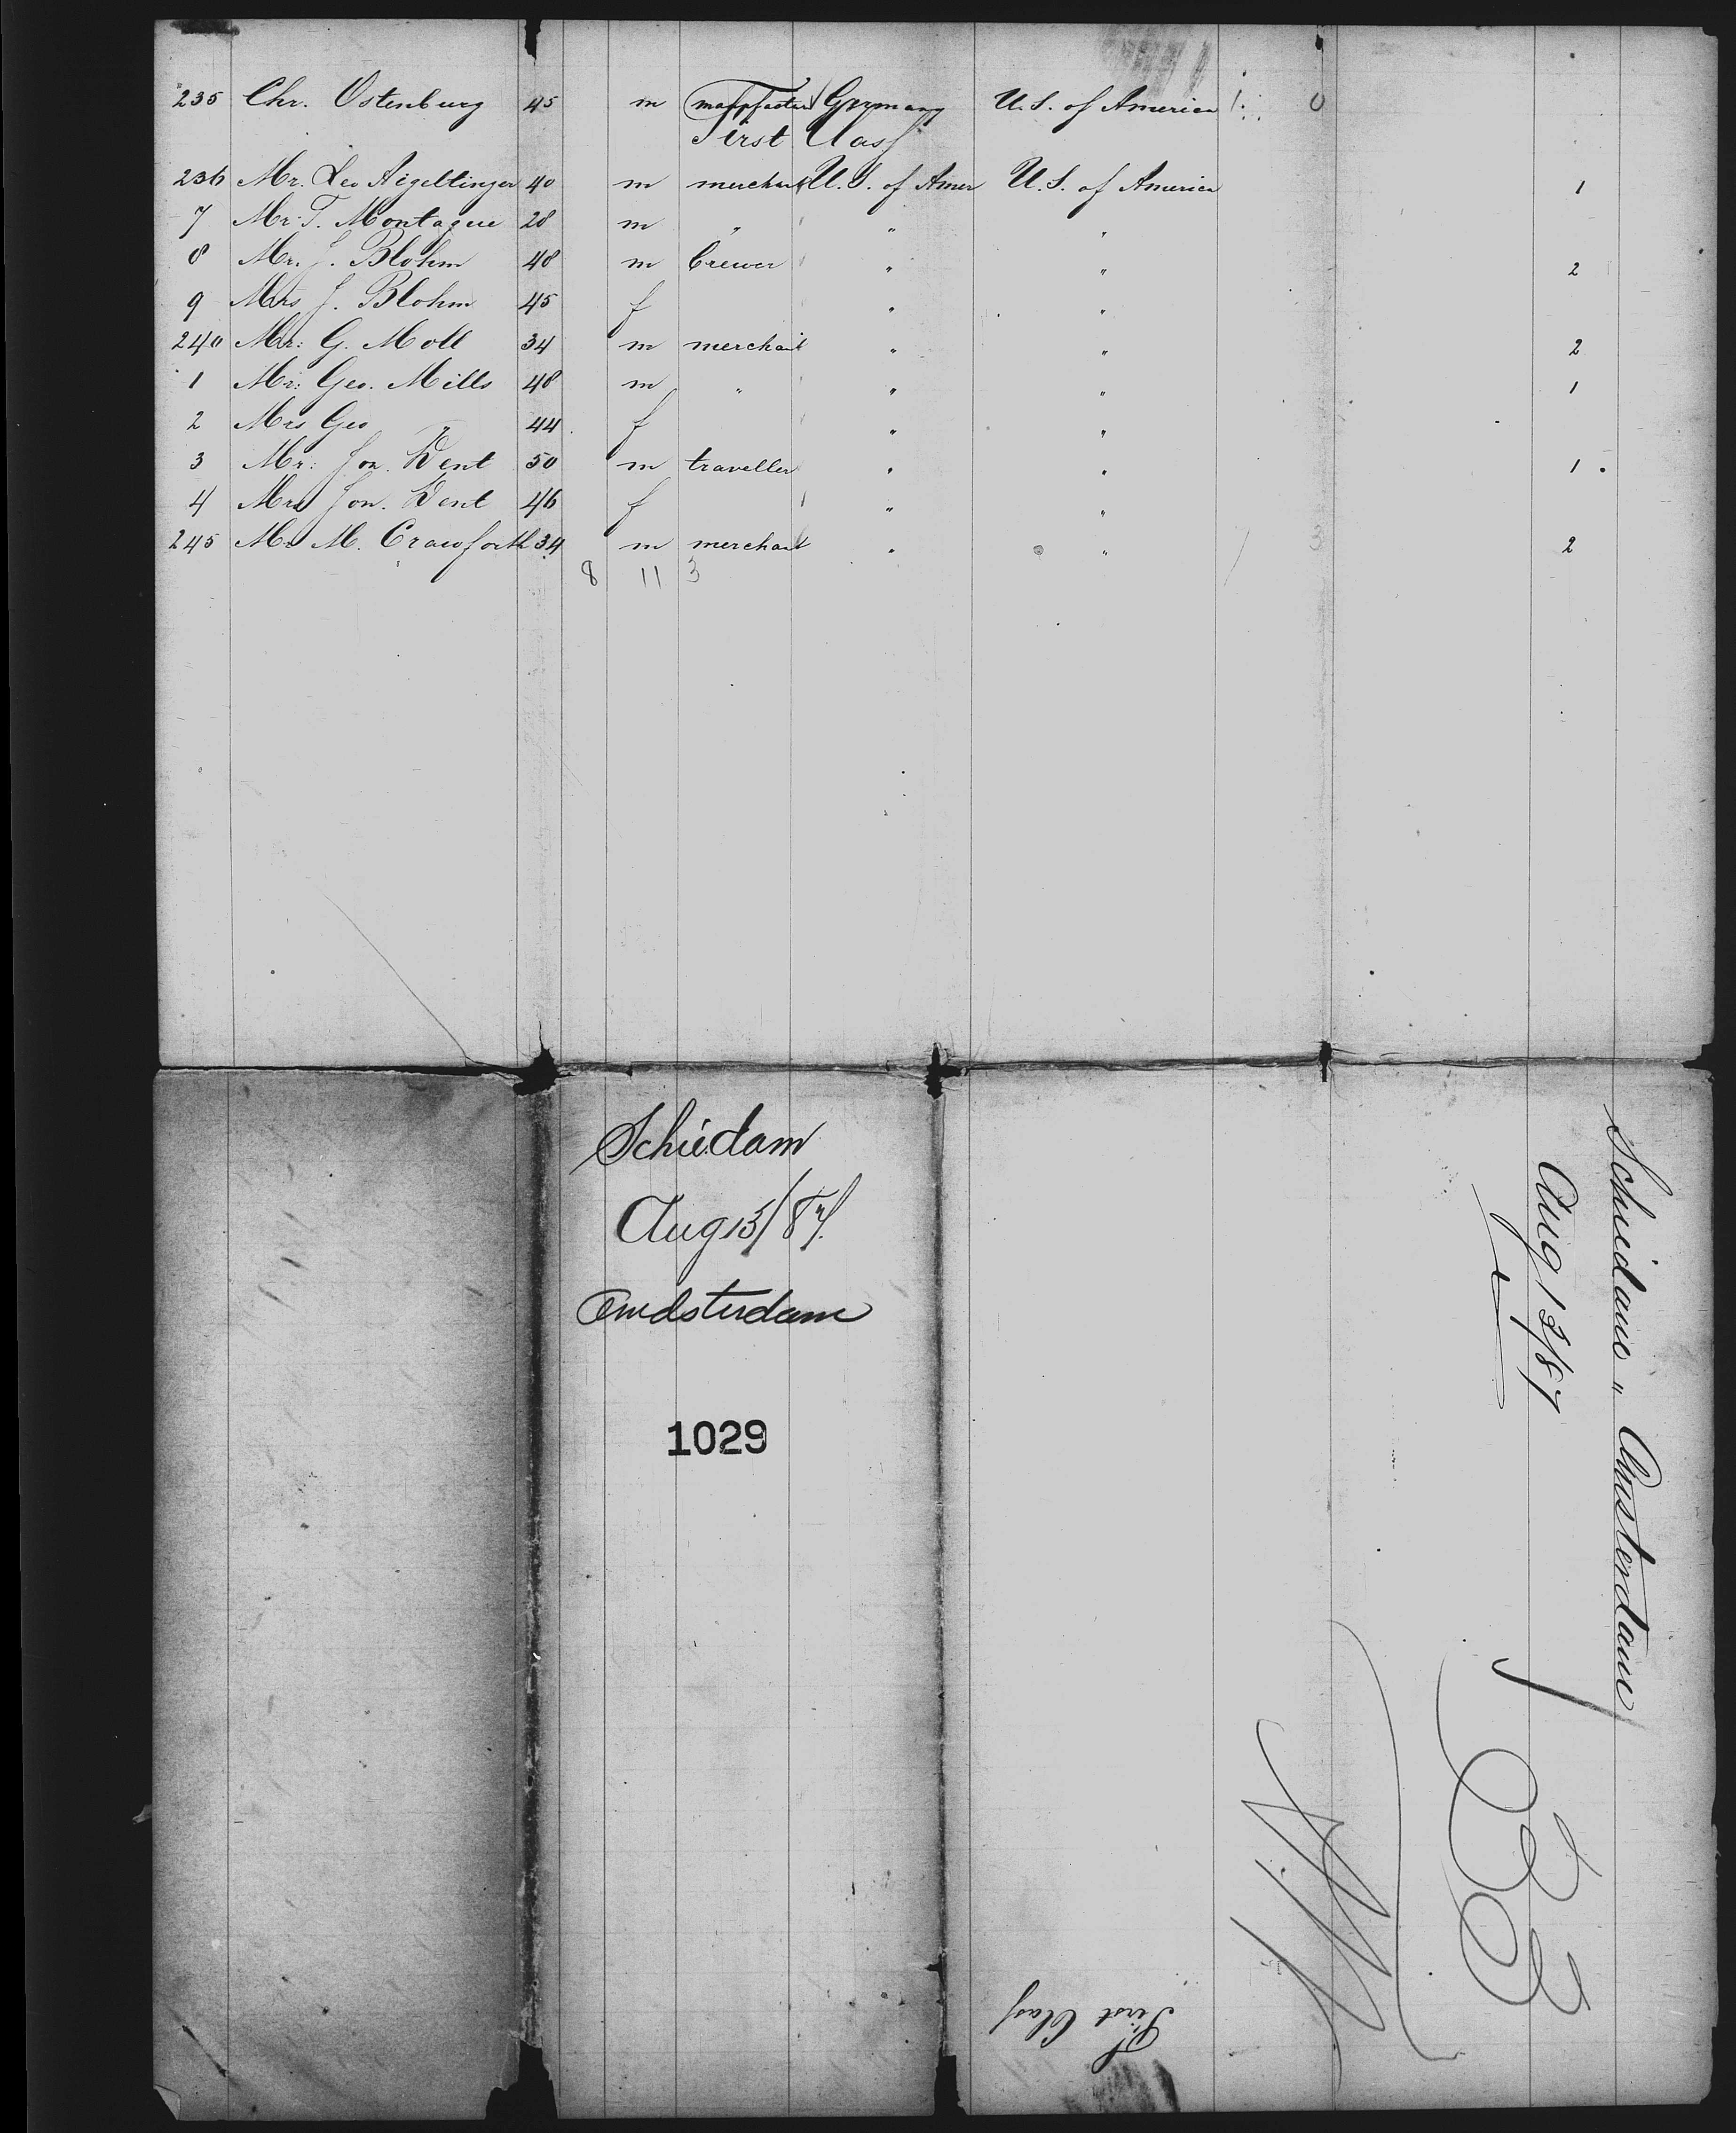 235 Chr. Ostenburg 45 m Germany U.S. of America 1 0
First Class
236 Mr. Leo Aigeltinger 40 m merchant U.S. of Amer U.S. of America 1
7 Mr. T. Montague 28 m " " "
8 Mr. J. Blohm 48 m brewer " " 2
9 Mrs J. Blohm 45 f " "
240 Mr: G. Moll 34 m merchant " " 2
1 Mr: Geo. Mills 48 m " " " 1
2 Mrs Geo " 44 f " "
3 Mr: Jon. Dent 50 m traveller " " 1
4 Mrs Jon. Dent 46 f " "
245 Mr M. Crawforth 34 m merchant " " 2
8 11 3
Schiedam
Aug 13/87.
Amsterdam
1029
Schiedam " Amsterdam
Aug 13/87
First Class